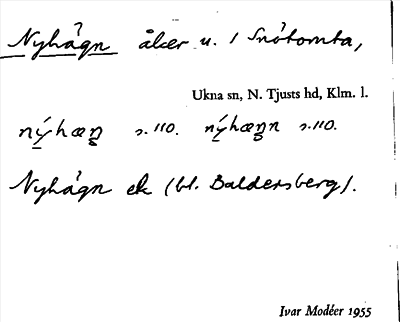 Nyhágn åker u. / Snötomta,
Ukna sn, N. Tjusts hd, Klm. l.
nýhæŋ s. 110. nýhæŋn s. 110.
Nyhágn ek (bl. Baldersberg).
Ivar Modéer 1955